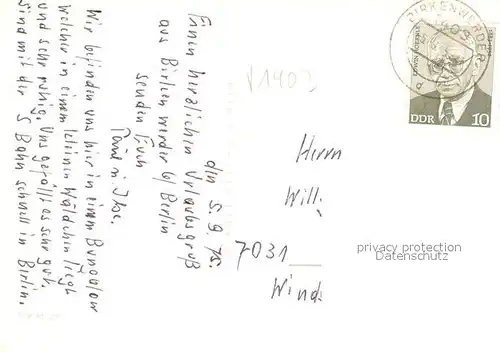 den 5.9.75.
Einen herzlichen Urlaubsgruß
aus Birkenwerder b/ Berlin
senden Euch
Wir befinden uns hier in einem Bungalow
welcher in einem kleinen Wäldchen liegt
und sehr ruhig. Uns gefällt es sehr gut.
sind mit der S Bahn schnell in Berlin.
V1402
Herrn
Will
7031
Wind
BIRKENWERDER
1409
DDR 10
privacy protection
Datenschutz